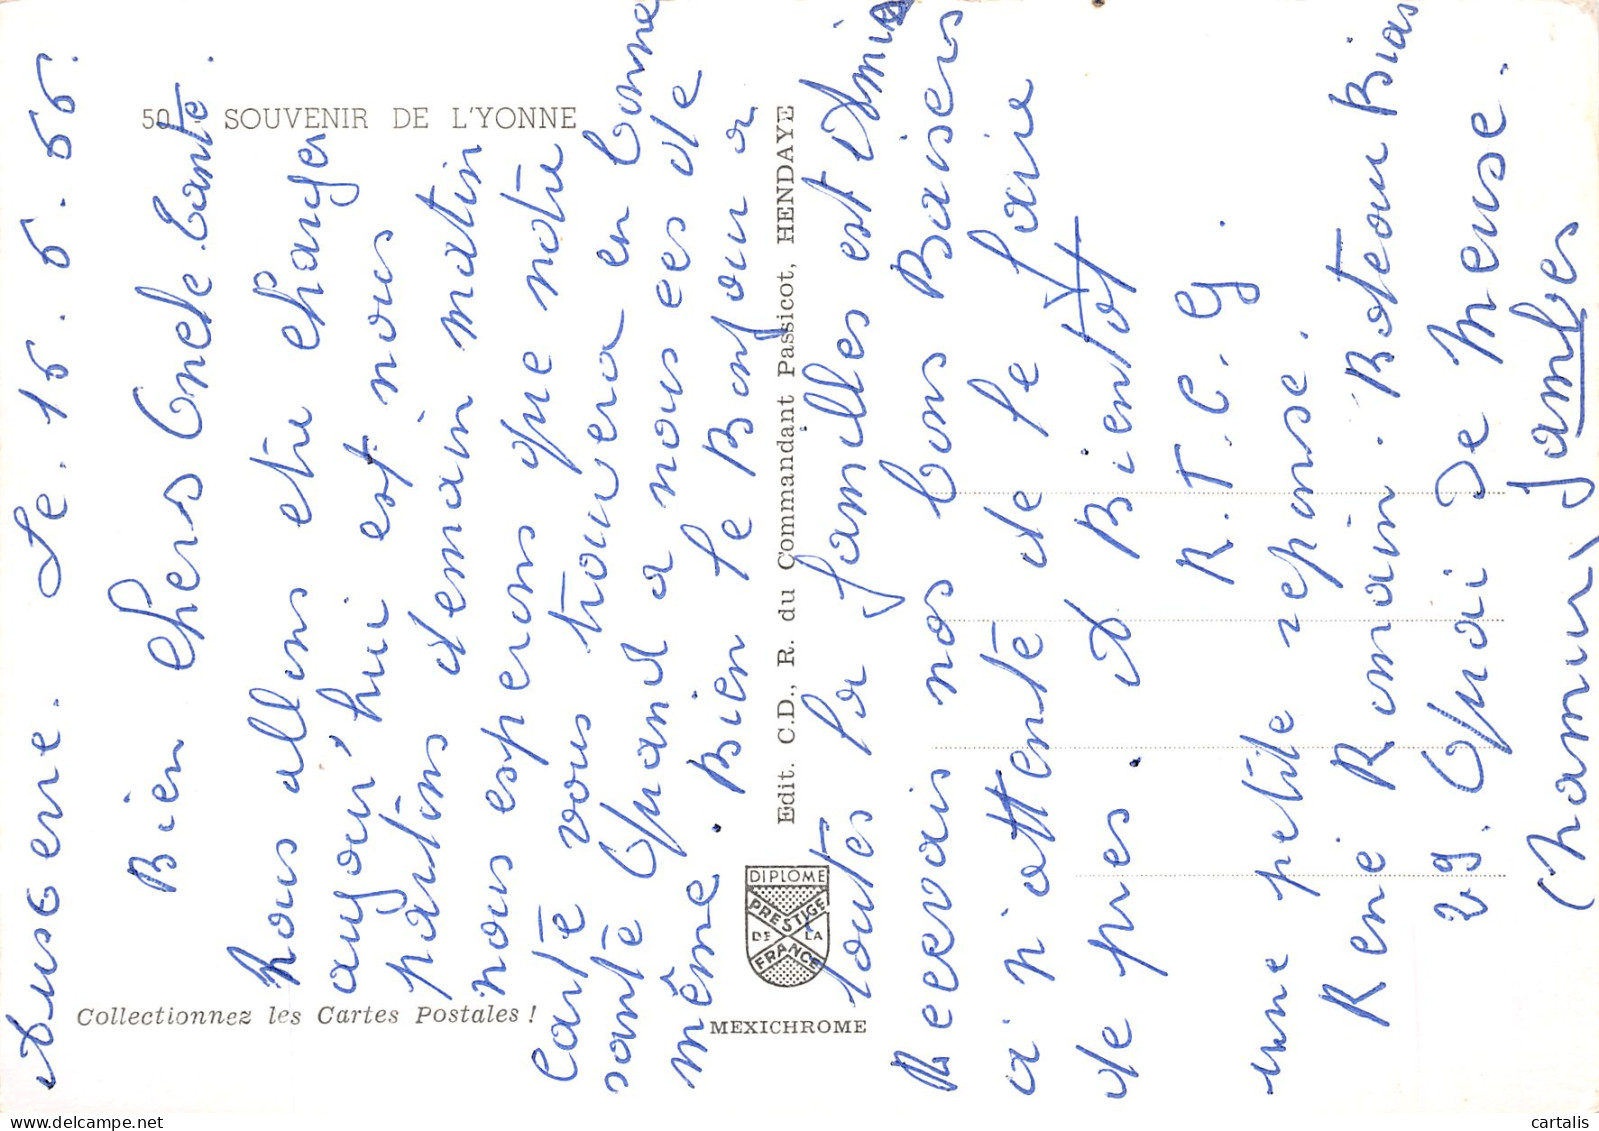 50 - SOUVENIR DE L'YONNE
Auxerre. Le. 15. 5. 65.
Bien chers Oncle. tante.
nous allons etre changer
aujour'hui est nous
partons demain matin
nous esperons que notre
carte vous trouvera en bonne
santé Quand a nous ces de
même. Bien le Bonjour a
toutes la familles est Amis
Recevais nos bons Baisers
a n'attente de le faire
de pres. A Bientot
R.T.C.G.
une petite reponse.
Rene Romain. Boteau Bias
29. Quai De Meuse.
(Namur) Jambes
Edit. C.D., R. du Commandant Passicot, HENDAYE
DIPLOME
PRESTIGE
DE LA
FRANCE
MEXICHROME
Collectionnez les Cartes Postales !
cartalis